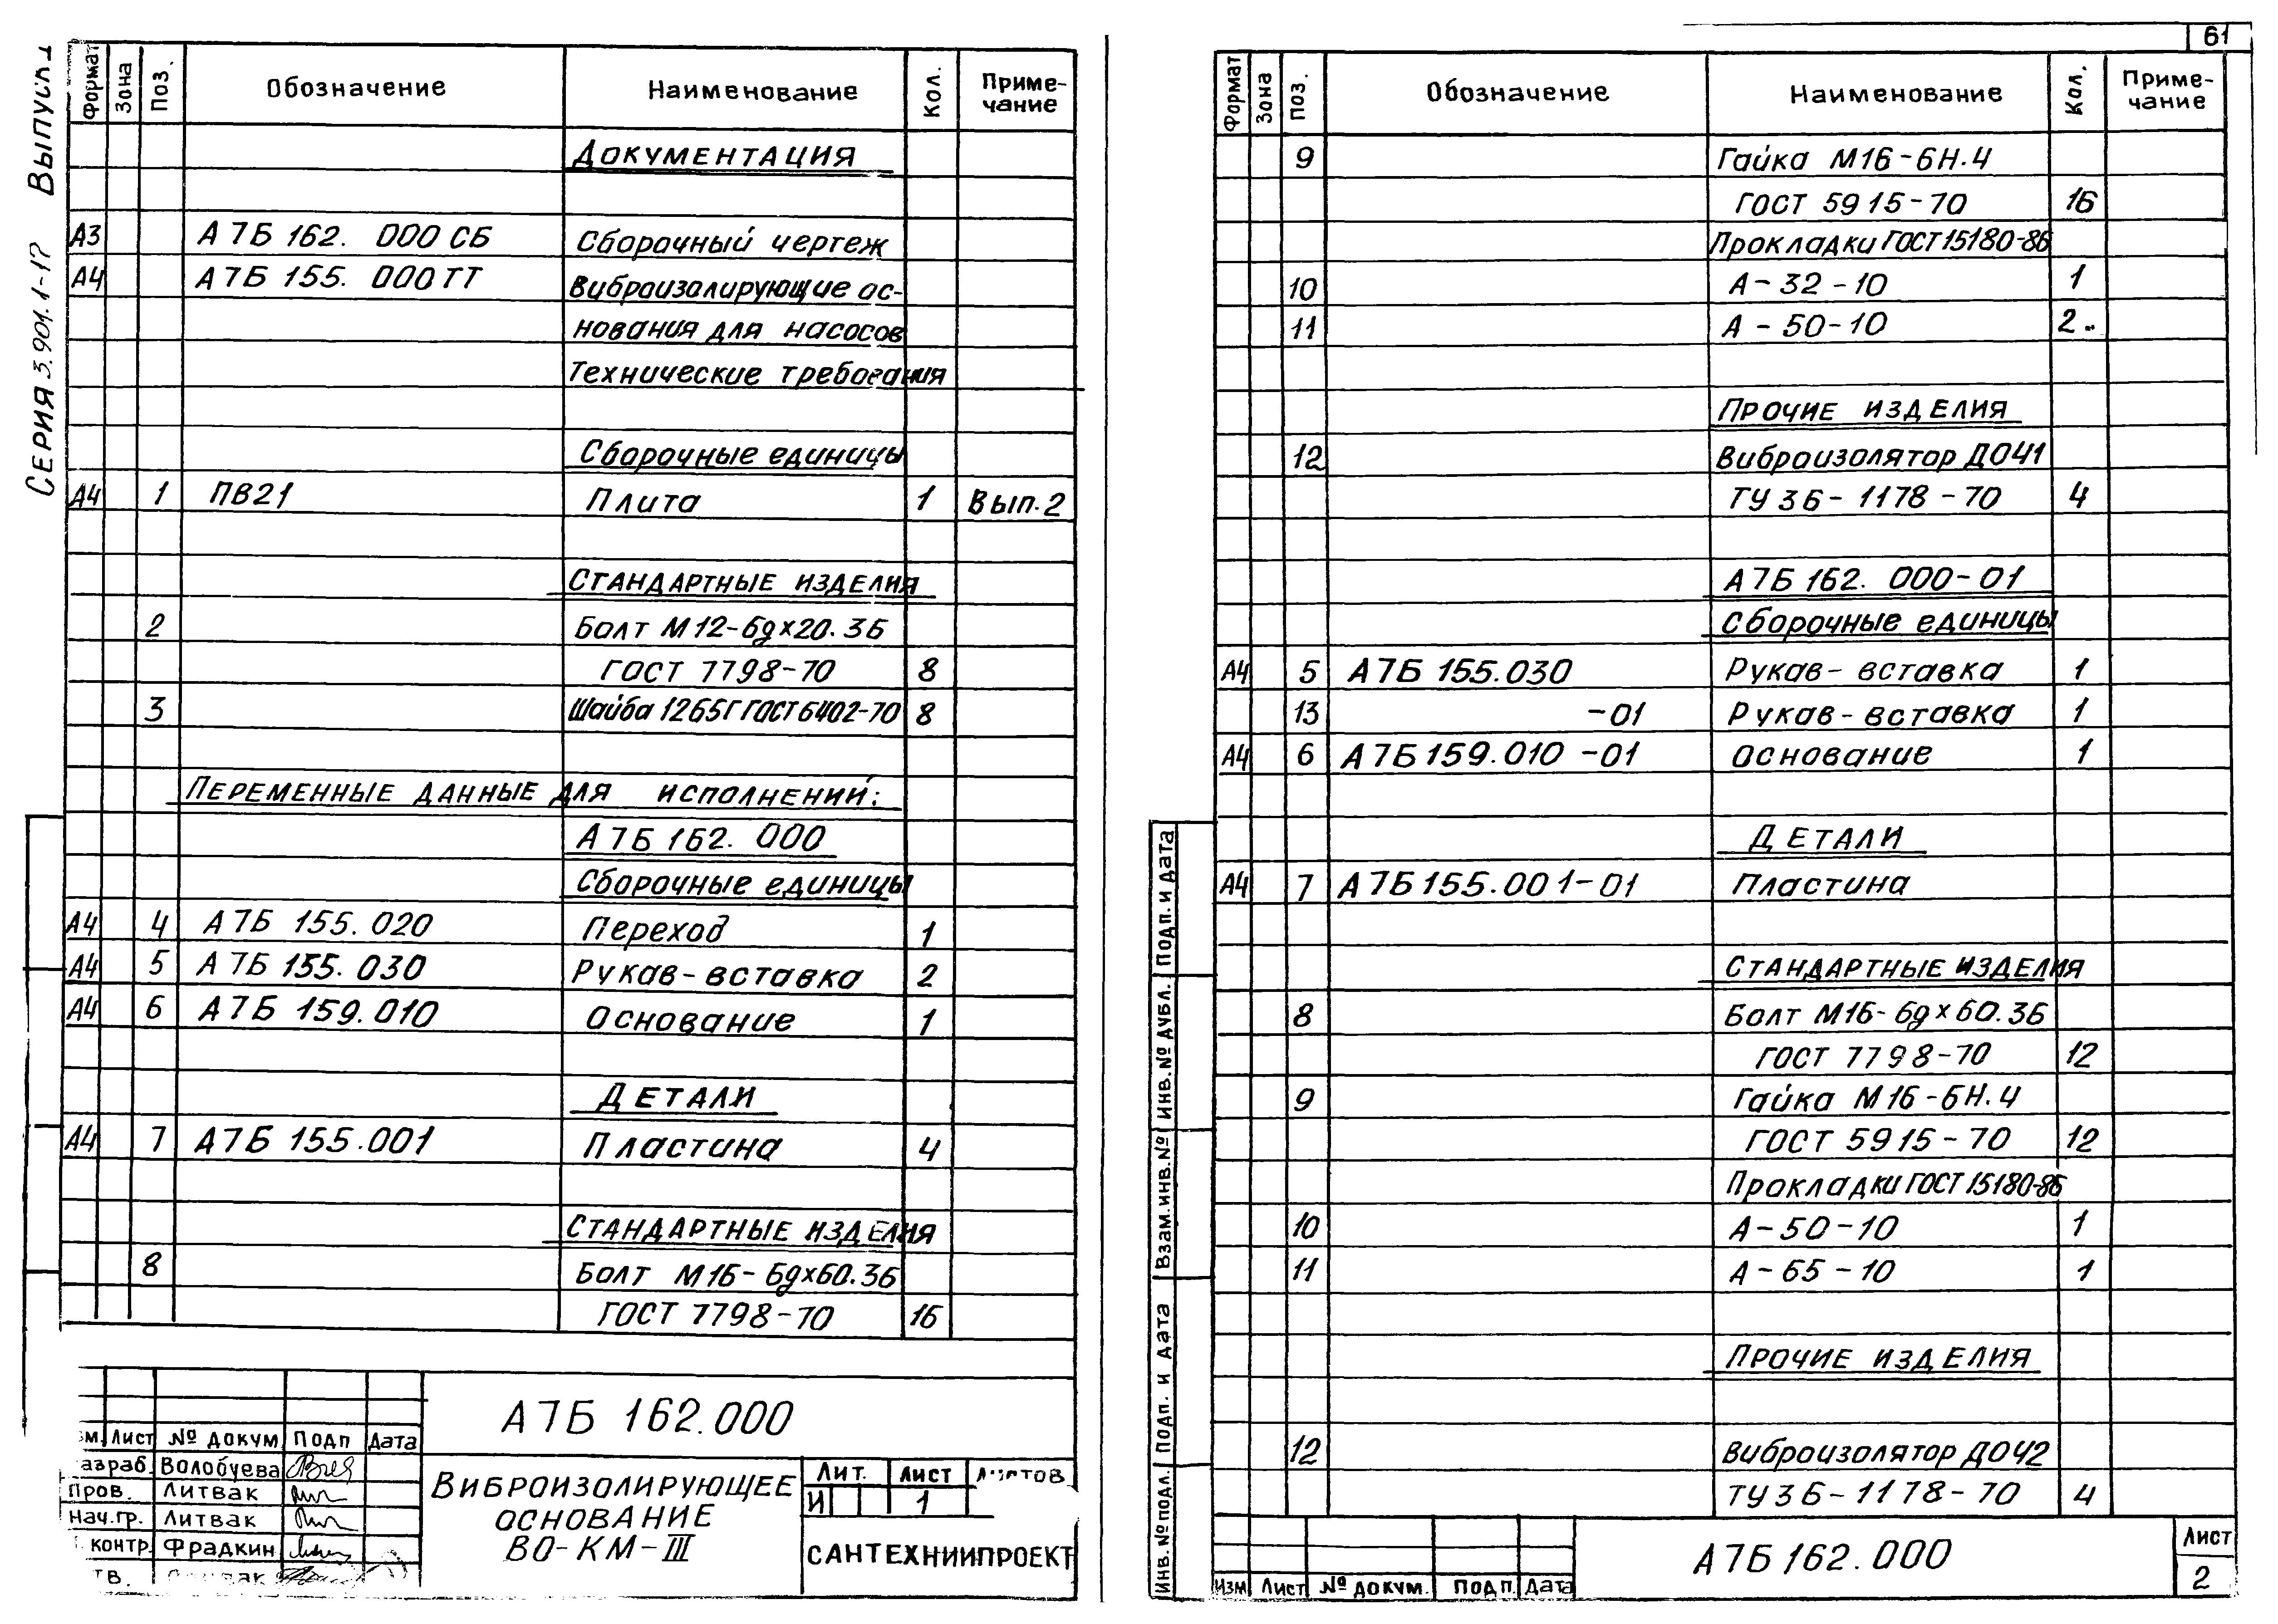 Серия 3.901.1-17 Выпуск 1
Формат Зона Поз. Обозначение Наименование Кол. Приме-
чание
Документация
А3 А7Б 162. 000 СБ Сборочный чертеж
А4 А7Б 155. 000 ТТ Виброизолирующие ос-
нования для насосов
Технические требования
Сборочные единицы
А4 1 ПВ21 Плита 1 Вып.2
Стандартные изделия
2 Болт М12-6gх20.36
ГОСТ 7798-70 8
3 Шайба 1265Г ГОСТ 6402-70 8
Переменные данные для исполнений:
А7Б 162. 000
Сборочные единицы
А4 4 А7Б 155.020 Переход 1
А4 5 А7Б 155.030 Рукав-вставка 2
А4 6 А7Б 159.010 Основание 1
Детали
А4 7 А7Б 155.001 Пластина 4
Стандартные изделия
8 Болт М16-6gх60.36
ГОСТ 7798-70 16
А7Б 162.000
Лист № докум Подп Дата
Волобуева
Пров. Литвак
Нач.гр. Литвак
контр. Фрадкин
Виброизолирующее
основание
ВО-КМ-III
Лит. Лист Листов
И 1
САНТЕХНИИПРОЕКТ
61
Формат Зона Поз. Обозначение Наименование Кол. Приме-
чание
9 Гайка М16-6Н.4
ГОСТ 5915-70 16
Прокладки ГОСТ 15180-86
10 А-32-10 1
11 А-50-10 2
Прочие изделия
12 Виброизолятор ДО41
ТУ 36-1178-70 4
А7Б 162. 000-01
Сборочные единицы
А4 5 А7Б 155.030 Рукав-вставка 1
13 -01 Рукав-вставка 1
А4 6 А7Б 159.010-01 Основание 1
Детали
А4 7 А7Б 155.001-01 Пластина
Стандартные изделия
8 Болт М16-6gх60.36
ГОСТ 7798-70 12
9 Гайка М16-6Н.4
ГОСТ 5915-70 12
Прокладки ГОСТ 15180-86
10 А-50-10 1
11 А-65-10 1
Прочие изделия
12 Виброизолятор ДО42
ТУ 36-1178-70 4
Инв.№ подл. Подп. и дата Взам.инв.№ Инв.№ дубл. Подп. и дата
Изм Лист № докум. Подп. Дата
А7Б 162.000
Лист
2